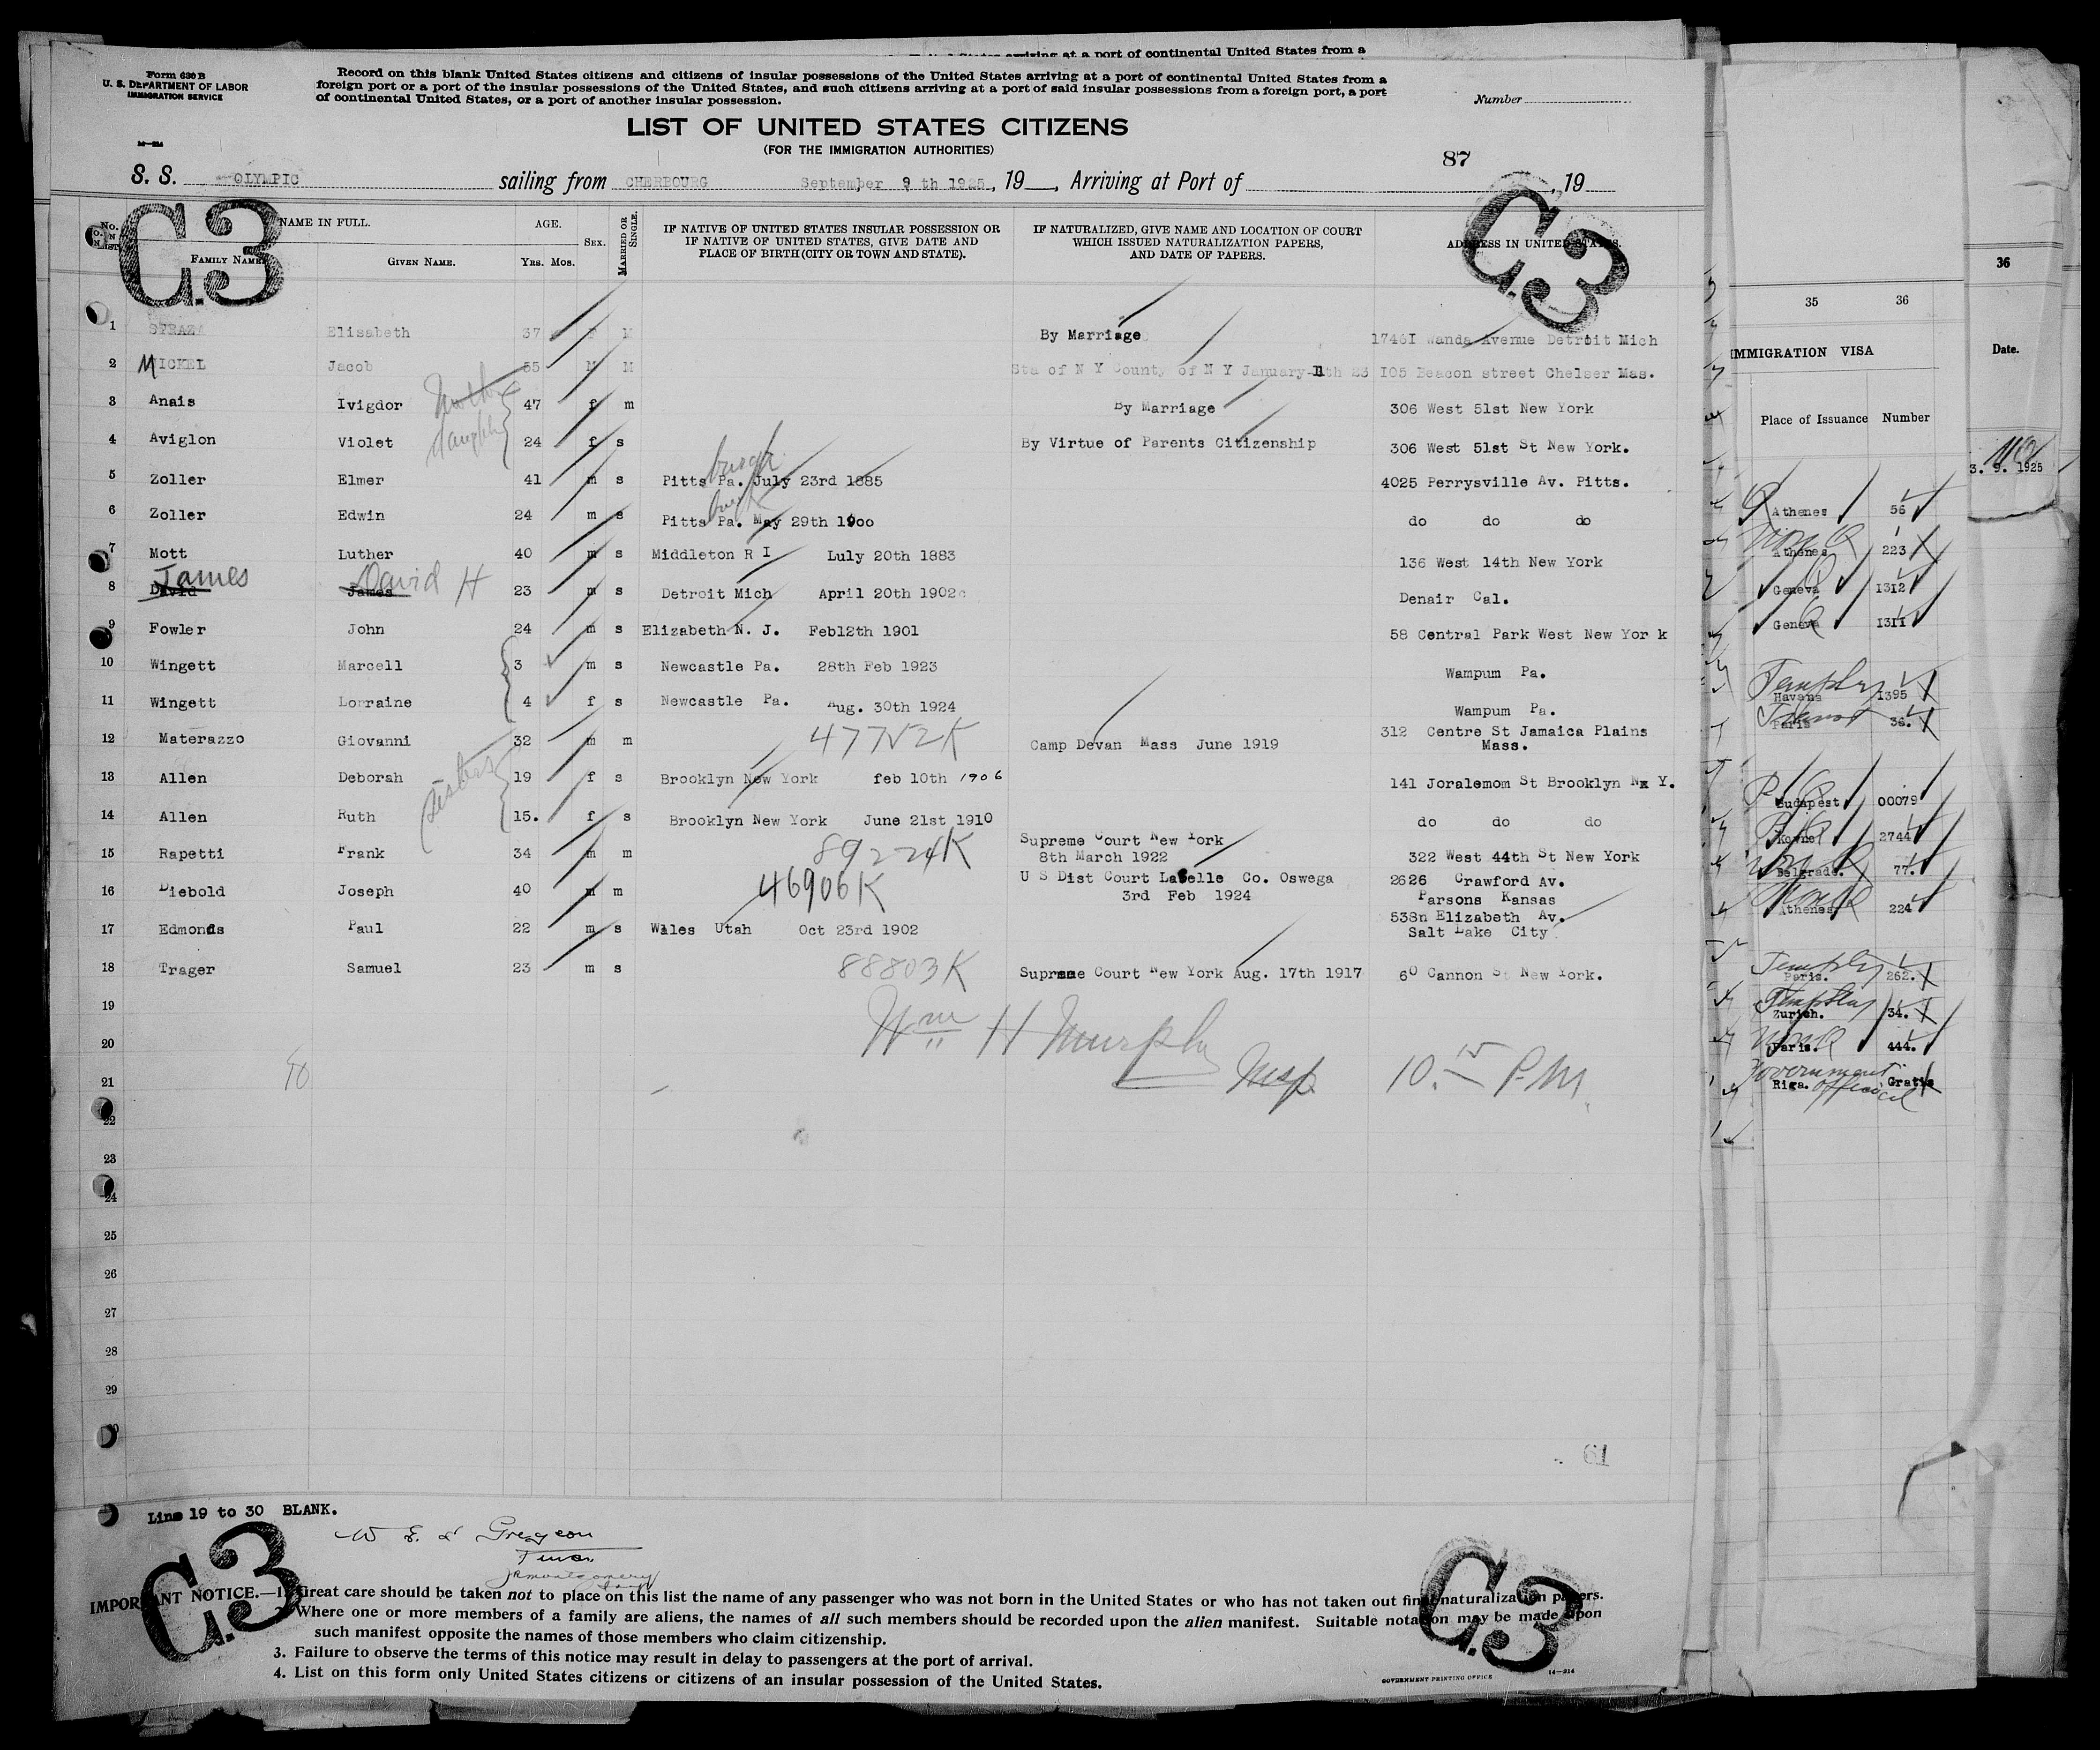 Form 630 B
U. S. DEPARTMENT OF LABOR
IMMIGRATION SERVICE
Record on this blank United States citizens and citizens of insular possessions of the United States arriving at a port of continental United States from a
foreign port or a port of the insular possessions of the United States, and such citizens arriving at a port of said insular possessions from a foreign port, a port
of continental United States, or a port of another insular possession.
Number
LIST OF UNITED STATES CITIZENS
(FOR THE IMMIGRATION AUTHORITIES)
87
S. S. OLYMPIC sailing from CHERBOURG September 9 th 1925, 19 , Arriving at Port of , 19
C.3
C.3
No. ON LIST
NAME IN FULL.
FAMILY NAME
GIVEN NAME.
AGE.
YRS. MOS.
SEX.
MARRIED OR SINGLE.
IF NATIVE OF UNITED STATES INSULAR POSSESSION OR
IF NATIVE OF UNITED STATES, GIVE DATE AND
PLACE OF BIRTH (CITY OR TOWN AND STATE).
IF NATURALIZED, GIVE NAME AND LOCATION OF COURT
WHICH ISSUED NATURALIZATION PAPERS,
AND DATE OF PAPERS.
ADDRESS IN UNITED STATES.
1 STRAZA Elisabeth 37 F M By Marriage 17461 Wanda Avenue Detroit Mich
2 MICKEL Jacob 55 M M Sta of N Y County of N Y January 11th 23 I05 Beacon street Chelser Mas.
3 Anais Ivigdor Mother 47 f m By Marriage 306 West 51st New York
4 Aviglon Violet daughter 24 f s By Virtue of Parents Citizenship 306 West 51st St New York.
5 Zoller Elmer 41 m s Pittsburgh Pa. July 23rd 1885 4025 Perrysville Av. Pitts.
6 Zoller Edwin 24 m s Pitts Pa. May 29th 1900 do do do
7 Mott Luther 40 m s Middleton R I Luly 20th 1883 136 West 14th New York
8 David James James David H 23 m s Detroit Mich April 20th 1902 Denair Cal.
9 Fowler John 24 m s Elizabeth N. J. Feb12th 1901 58 Central Park West New Yor k
10 Wingett Marcell 3 m s Newcastle Pa. 28th Feb 1923 Wampum Pa.
11 Wingett Lorraine 4 f s Newcastle Pa. Aug. 30th 1924 Wampum Pa.
12 Materazzo Giovanni 32 m m 47752K Camp Devan Mass June 1919 312 Centre St Jamaica Plains
Mass.
13 Allen Deborah Sisters 19 f s Brooklyn New York feb 10th 1906 141 Joralemom St Brooklyn Nx Y.
14 Allen Ruth 15. f s Brooklyn New York June 21st 1910 do do do
15 Rapetti Frank 34 m m 89224K Supreme Court New York
8th March 1922 322 West 44th St New York
16 Diebold Joseph 40 m m 46906K U S Dist Court LaBelle Co. Oswega
3rd Feb 1924 2626 Crawford Av.
Parsons Kansas
17 Edmonds Paul 22 m s Wales Utah Oct 23rd 1902 538n Elizabeth Av.
Salt Lake City
18 Trager Samuel 23 m s 88803K Supreme Court New York Aug. 17th 1917 60 Cannon St New York.
19
20
21
22
23
24
25
26
27
28
29
30
Wm H Murphy
Insp 10.15 P.M.
61
Line 19 to 30 BLANK.
C.3
C.3
IMPORTANT NOTICE.—1. Great care should be taken not to place on this list the name of any passenger who was not born in the United States or who has not taken out final naturalization papers.
2. Where one or more members of a family are aliens, the names of all such members should be recorded upon the alien manifest. Suitable notation may be made upon
such manifest opposite the names of those members who claim citizenship.
3. Failure to observe the terms of this notice may result in delay to passengers at the port of arrival.
4. List on this form only United States citizens or citizens of an insular possession of the United States.
GOVERNMENT PRINTING OFFICE
14—214
35 36
IMMIGRATION VISA
Place of Issuance Number
Athenes 56
Athenes 223
Geneva 1312
Geneva 1311
Havana 1395
Paris 36.
Budapest 00079
Kovno 2744
Belgrade. 77.
Athenes 224
Paris. 262.
Zurich. 34.
Paris. 444.
Riga. Gratis
Government official
36
Date.
3. 9. 1925